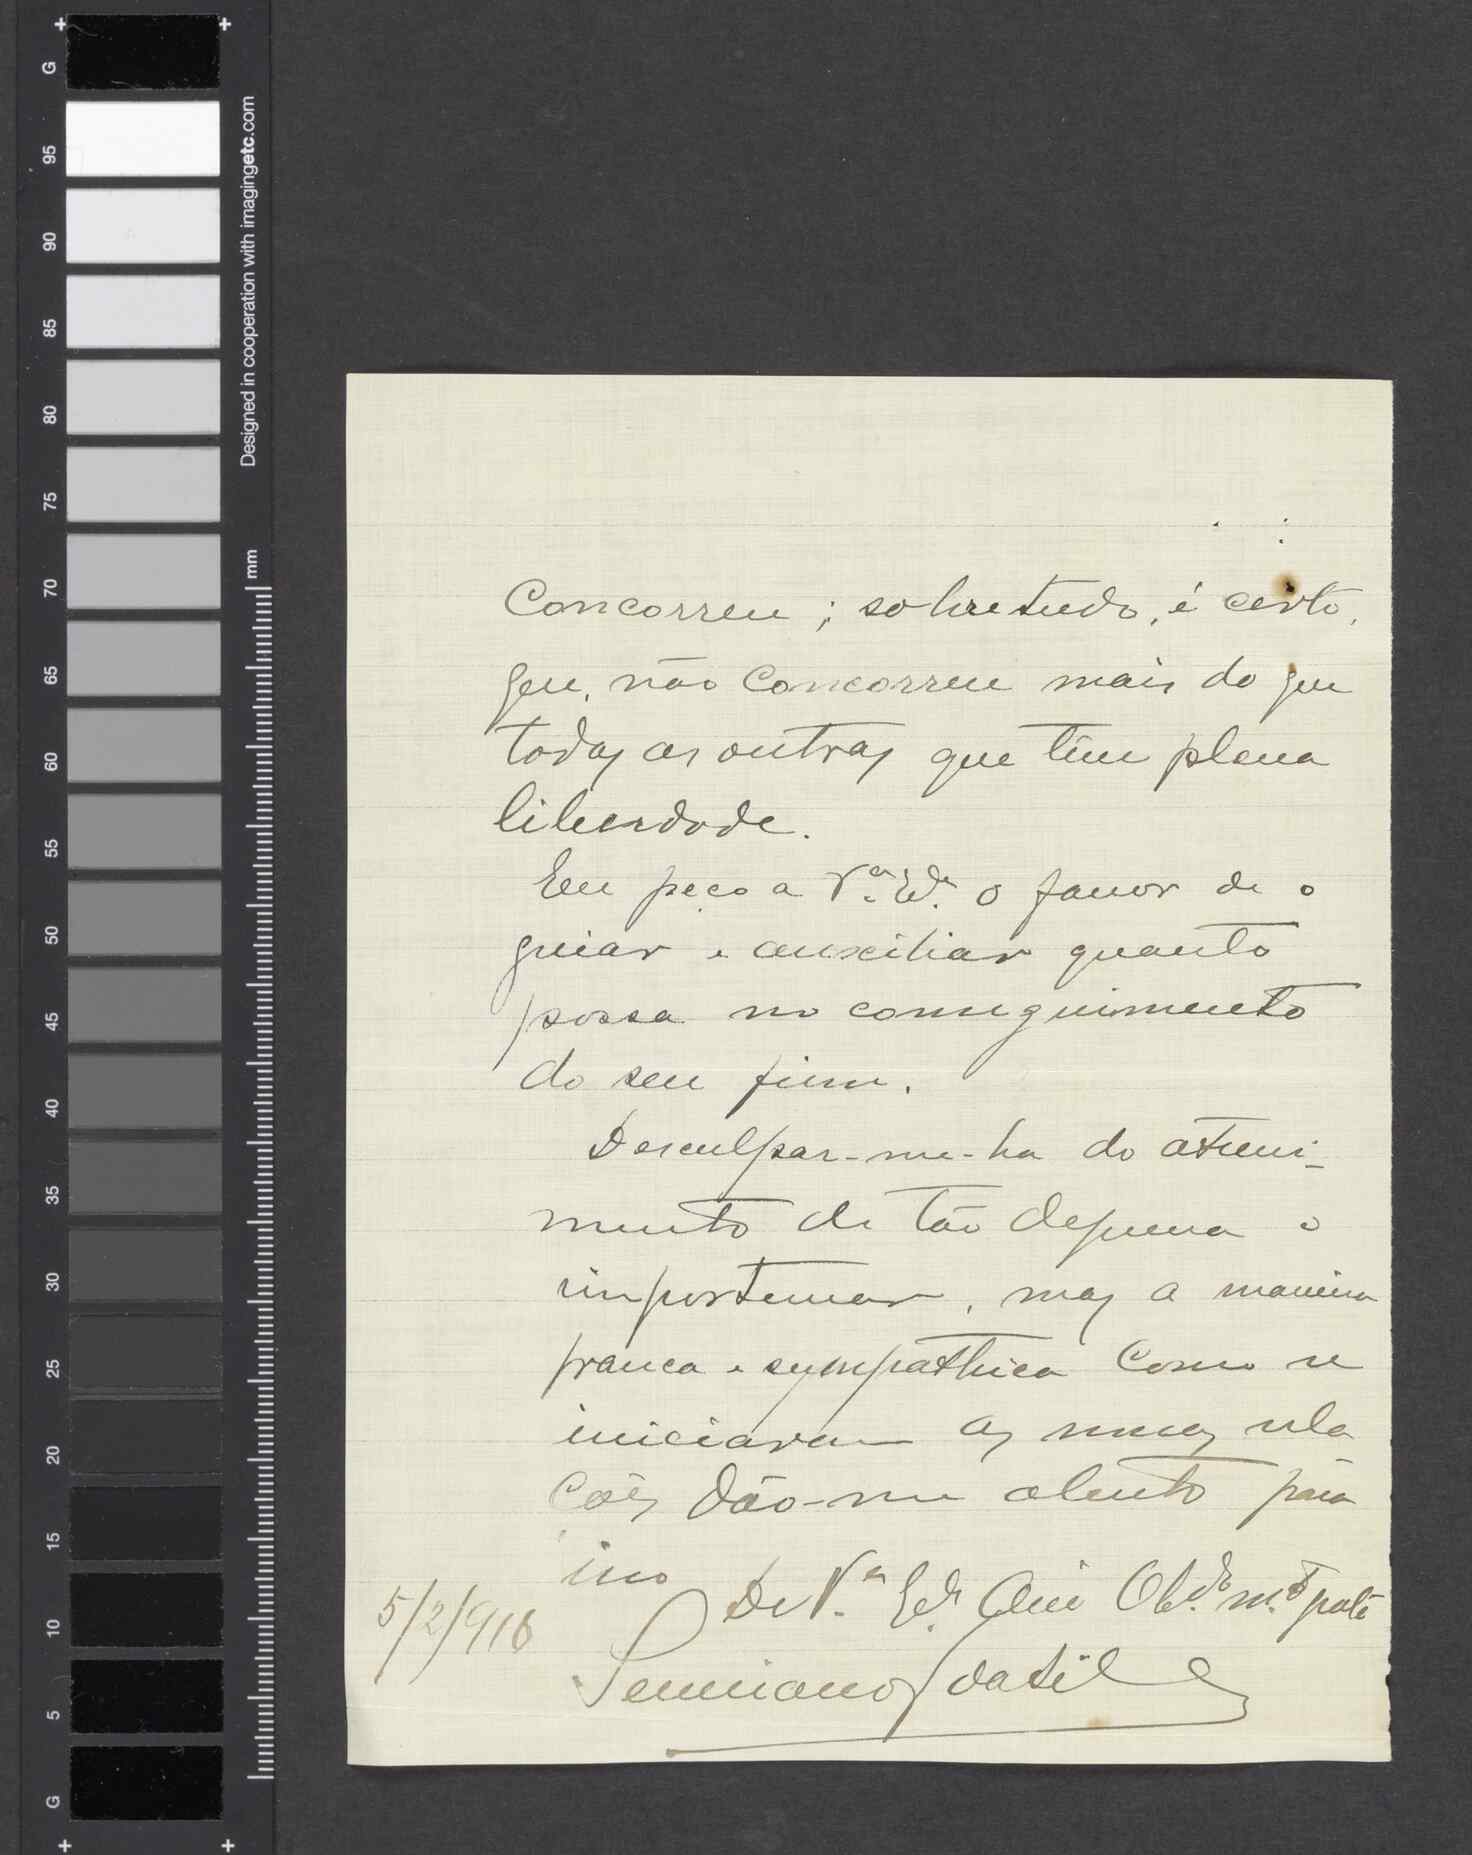 G
95
90
85
80
75
70
65
60
55
50
45
40
35
30
25
20
15
10
5
G
Designed in cooperation with imagingetc.com
mm
Concorreu ; sobretudo, é certo,
que, não concorreu mais do que
todas as outras que têm plena
liberdade.
Eu peço a V.ª Ex.ª o favor de o
guiar e auxiliar quanto
possa no conseguimento
do seu fim.
Desculpar-me-ha do atrevi-
mento de tão depressa o
importunar, mas a maneira
franca e sympathica como se
iniciaram as nossas rela
ções dão-me alento para
isso
De V.ª Ex.ª Obd.º m.to
5/2/916
da Silva